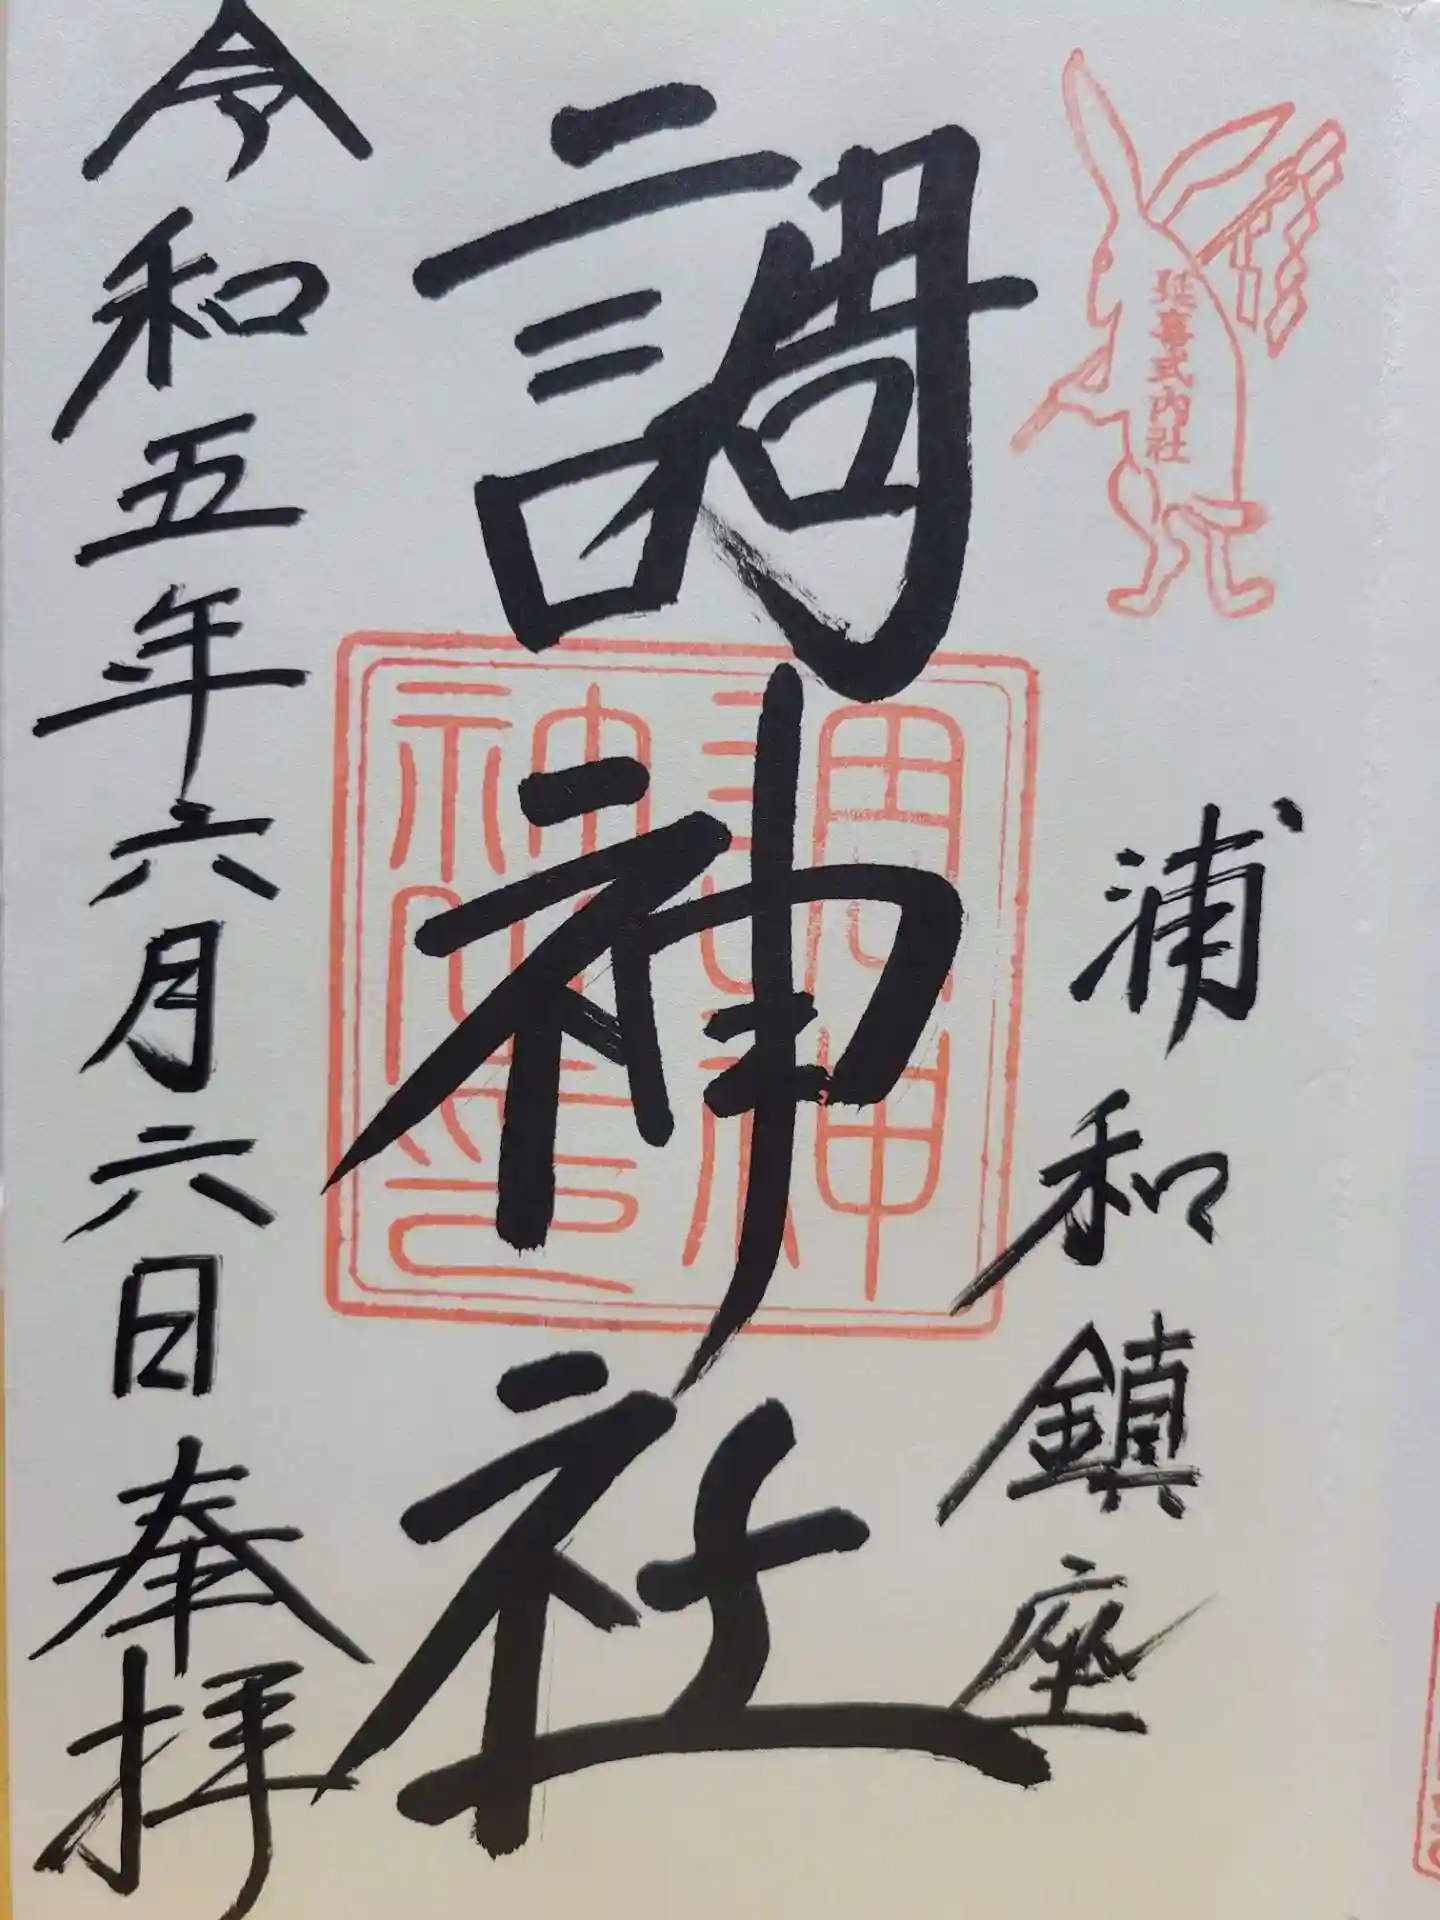 延喜式内社
浦和鎮座
調神社
調神
神社印
令和五年六月六日奉拝